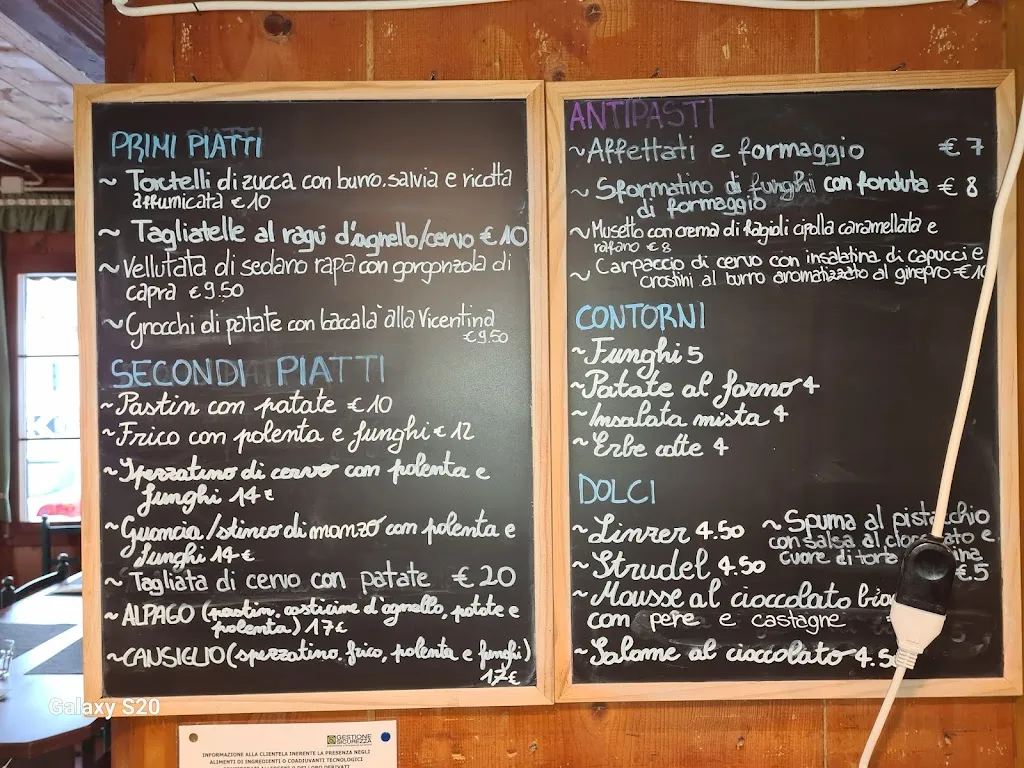 PRIMI PIATTI
~ Tortelli di zucca con burro, salvia e ricotta
affumicata € 10
~ Tagliatelle al ragú d'agnello/cervo € 10
~ Vellutata di sedano rapa con gorgonzola di
capra € 9.50
~ Gnocchi di patate con baccalà alla Vicentina
€ 9.50
SECONDI PIATTI
~ Pastin con patate € 10
~ Frico con polenta e funghi € 12
~ Spezzatino di cervo con polenta e
funghi 14 €
~ Guancia/stinco di manzo con polenta e
funghi 14 €
~ Tagliata di cervo con patate € 20
~ ALPAGO (pastin, costicine d'agnello, patate e
polenta) 17 €
~ CANSIGLIO (spezzatino, frico, polenta e funghi)
17 €
ANTIPASTI
~ Affettati e formaggio € 7
~ Sformatino di funghi con fonduta € 8
di formaggio
~ Musetto con crema di fagioli cipolla caramellata e
rafano € 8
~ Carpaccio di cervo con insalatina di capucci e
crostini al burro aromatizzato al ginepro € 10
CONTORNI
~ Funghi 5
~ Patate al forno 4
~ Insalata mista 4
~ Erbe cotte 4
DOLCI
~ Linzer 4.50
~ Strudel 4.50
~ Mousse al cioccolato
con pere e castagne
~ Salame al cioccolato 4.50
~ Spuma al pistacchio
con salsa al cioccolato e
cuore di torta
€ 5
Galaxy S20
GESTIONE
SICUREZZA
INFORMAZIONE ALLA CLIENTELA INERENTE LA PRESENZA NEGLI
ALIMENTI DI INGREDIENTI O COADIUVANTI TECNOLOGICI